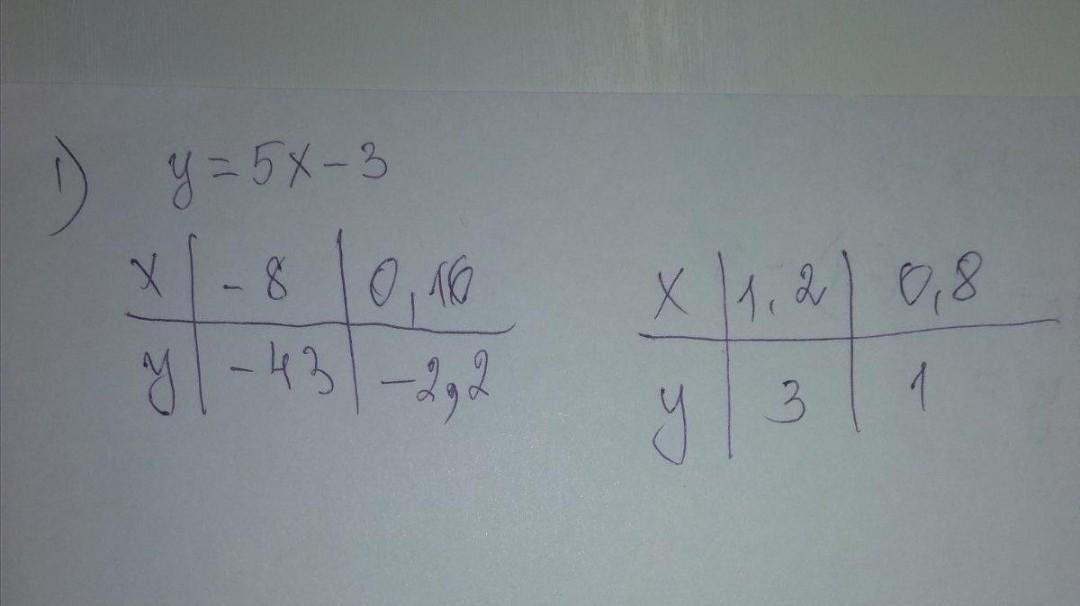 1) y = 5x - 3
x | - 8 | 0,16 x | 1,2 | 0,8
y | - 43 | - 2,2 y | 3 | 1